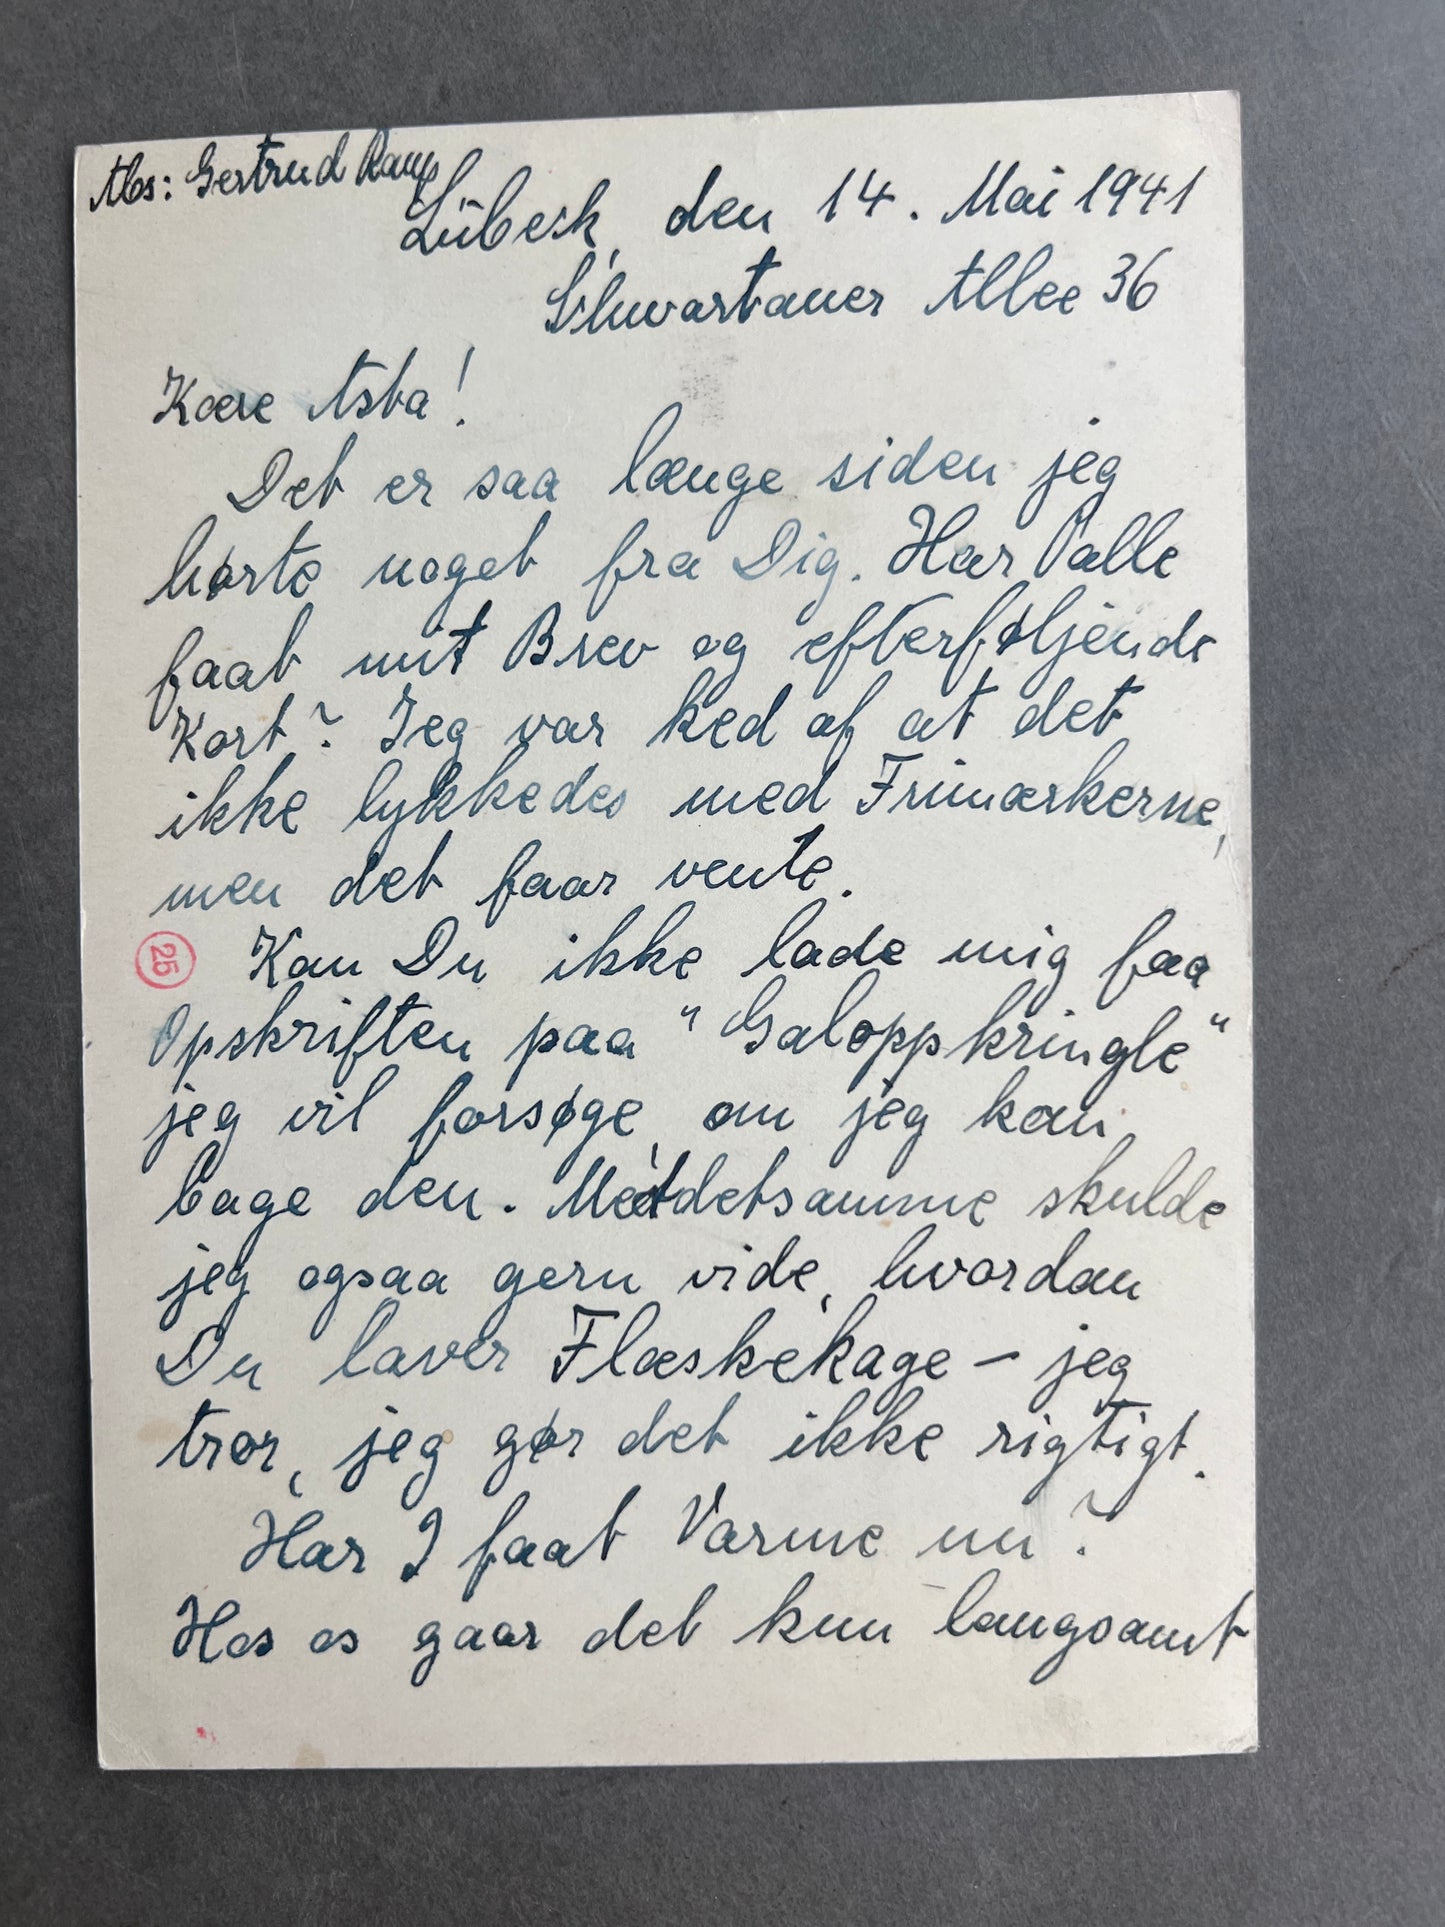 Abs: Gertrud
Lübeck, den 14. Mai 1941
Schwartauer Allee 36
Kære Asta!
Det er saa længe siden jeg
hørte noget fra Dig. Har Palle
faat mit Brev og efterføljende
Kort? Jeg var ked af at det
ikke lykkedes med Frimærkerne,
men det faar vente.
25
Kan Du ikke lade mig faa
Opskriften paa "Galoppkringle"
jeg vil forsøge, om jeg kan
bage den. Meddetsamme skulde
jeg ogsaa gern vide, hvordan
Du laver Flæskekage – jeg
tror, jeg gør det ikke rigtigt.
Har I faat Varme nu?
Hos os gaar det kun langsamt